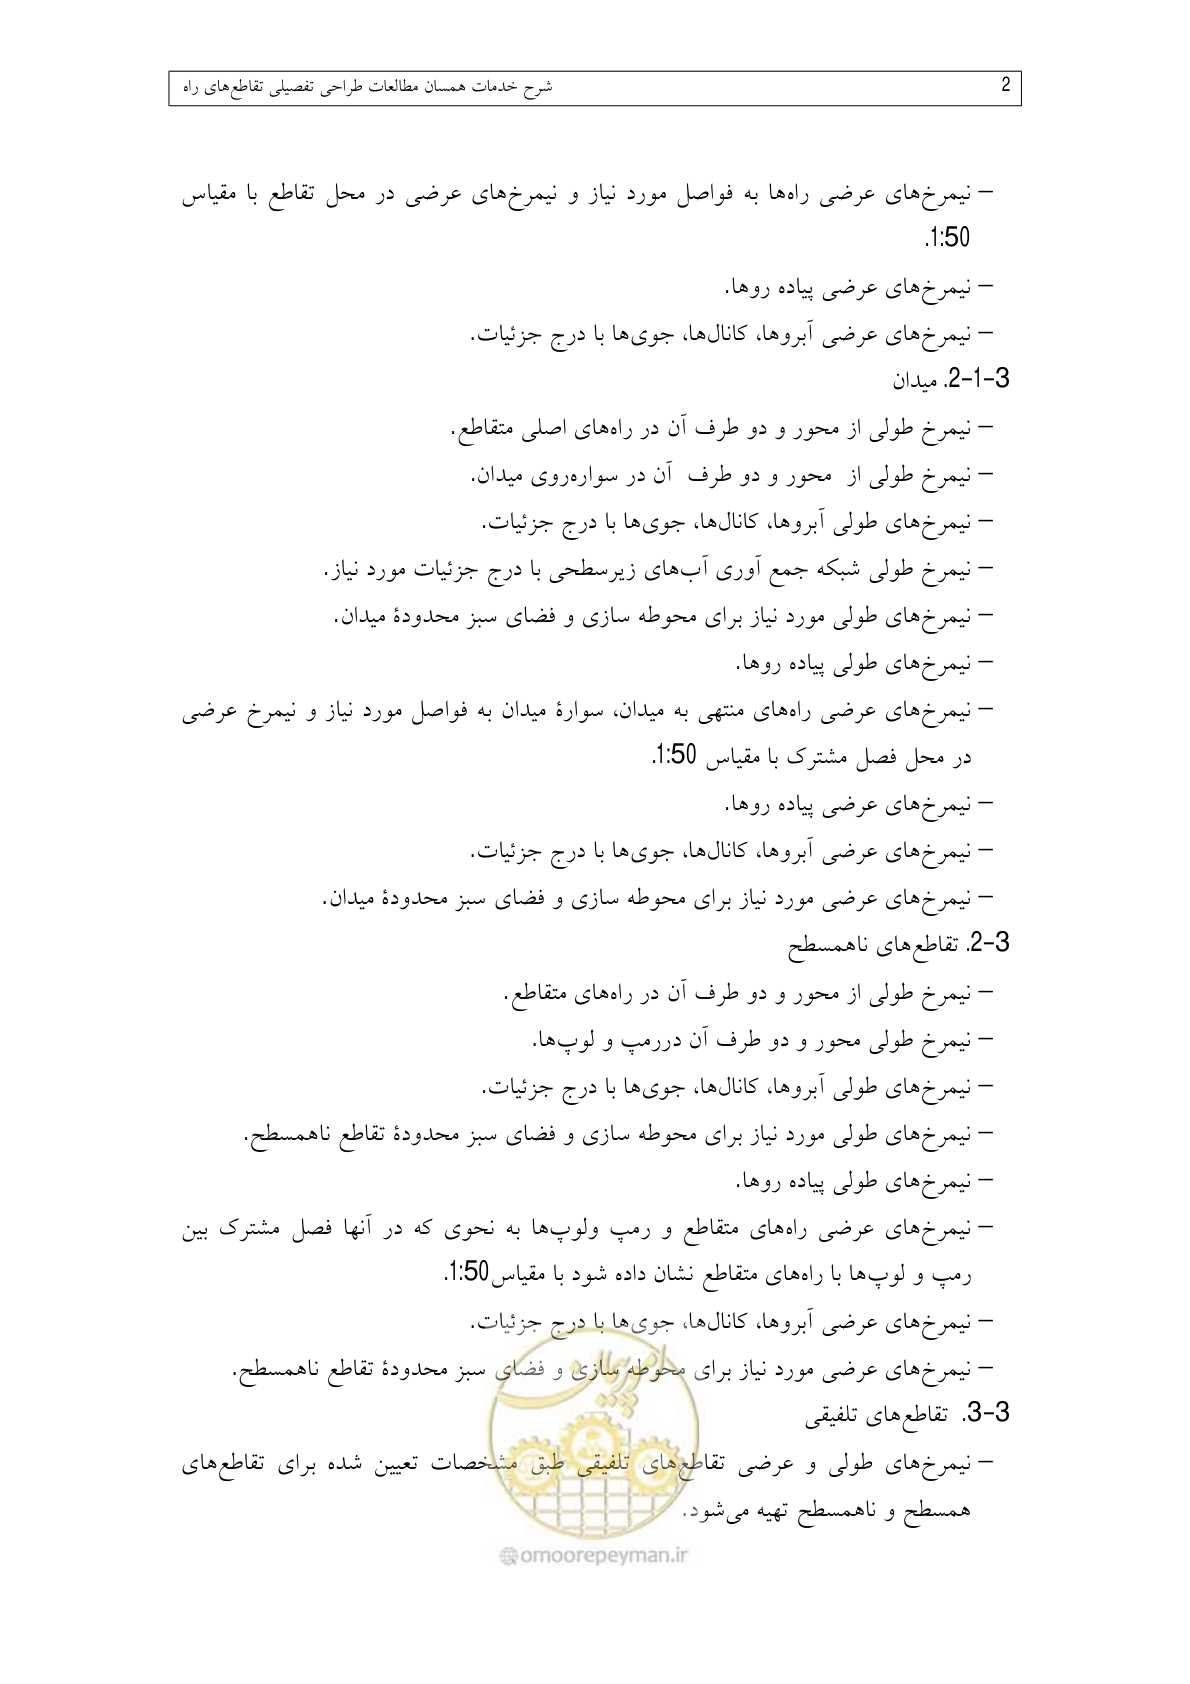 2 شرح خدمات همسان مطالعات طراحی تفصیلی تقاطع‌های راه
– نیمرخ‌های عرضی راه‌ها به فواصل مورد نیاز و نیمرخ‌های عرضی در محل تقاطع با مقیاس
1:50.
– نیمرخ‌های عرضی پیاده روها.
– نیمرخ‌های عرضی آبروها، کانال‌ها، جوی‌ها با درج جزئیات.
3-1-2. میدان
– نیمرخ طولی از محور و دو طرف آن در راه‌های اصلی متقاطع.
– نیمرخ طولی از محور و دو طرف آن در سواره‌روی میدان.
– نیمرخ‌های طولی آبروها، کانال‌ها، جوی‌ها با درج جزئیات.
– نیمرخ طولی شبکه جمع آوری آب‌های زیرسطحی با درج جزئیات مورد نیاز.
– نیمرخ‌های طولی مورد نیاز برای محوطه سازی و فضای سبز محدودۀ میدان.
– نیمرخ‌های طولی پیاده روها.
– نیمرخ‌های عرضی راه‌های منتهی به میدان، سوارۀ میدان به فواصل مورد نیاز و نیمرخ عرضی
در محل فصل مشترک با مقیاس 1:50.
– نیمرخ‌های عرضی پیاده روها.
– نیمرخ‌های عرضی آبروها، کانال‌ها، جوی‌ها با درج جزئیات.
– نیمرخ‌های عرضی مورد نیاز برای محوطه سازی و فضای سبز محدودۀ میدان.
3-2. تقاطع‌های ناهمسطح
– نیمرخ طولی از محور و دو طرف آن در راه‌های متقاطع.
– نیمرخ طولی محور و دو طرف آن دررمپ و لوپ‌ها.
– نیمرخ‌های طولی آبروها، کانال‌ها، جوی‌ها با درج جزئیات.
– نیمرخ‌های طولی مورد نیاز برای محوطه سازی و فضای سبز محدودۀ تقاطع ناهمسطح.
– نیمرخ‌های طولی پیاده روها.
– نیمرخ‌های عرضی راه‌های متقاطع و رمپ ولوپ‌ها به نحوی که در آنها فصل مشترک بین
رمپ و لوپ‌ها با راه‌های متقاطع نشان داده شود با مقیاس1:50.
– نیمرخ‌های عرضی آبروها، کانال‌ها، جوی‌ها با درج جزئیات.
– نیمرخ‌های عرضی مورد نیاز برای محوطه سازی و فضای سبز محدودۀ تقاطع ناهمسطح.
امور پیمان
3-3. تقاطع‌های تلفیقی
– نیمرخ‌های طولی و عرضی تقاطع‌های تلفیقی طبق مشخصات تعیین شده برای تقاطع‌های
همسطح و ناهمسطح تهیه می‌شود.
@omoorepeyman.ir